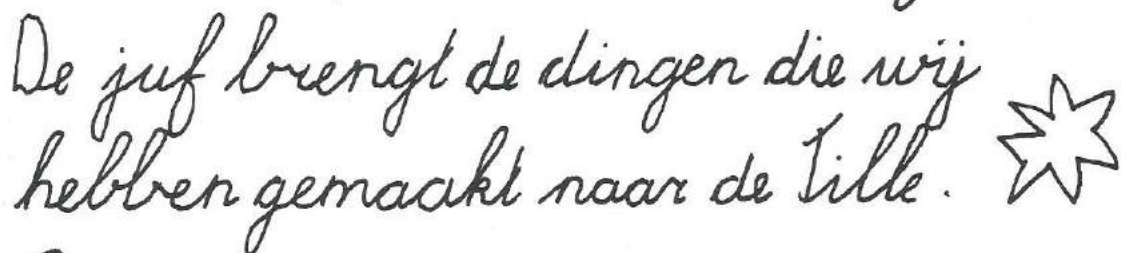 De juf brengt de dingen die wij
hebben gemaakt naar de Tille.